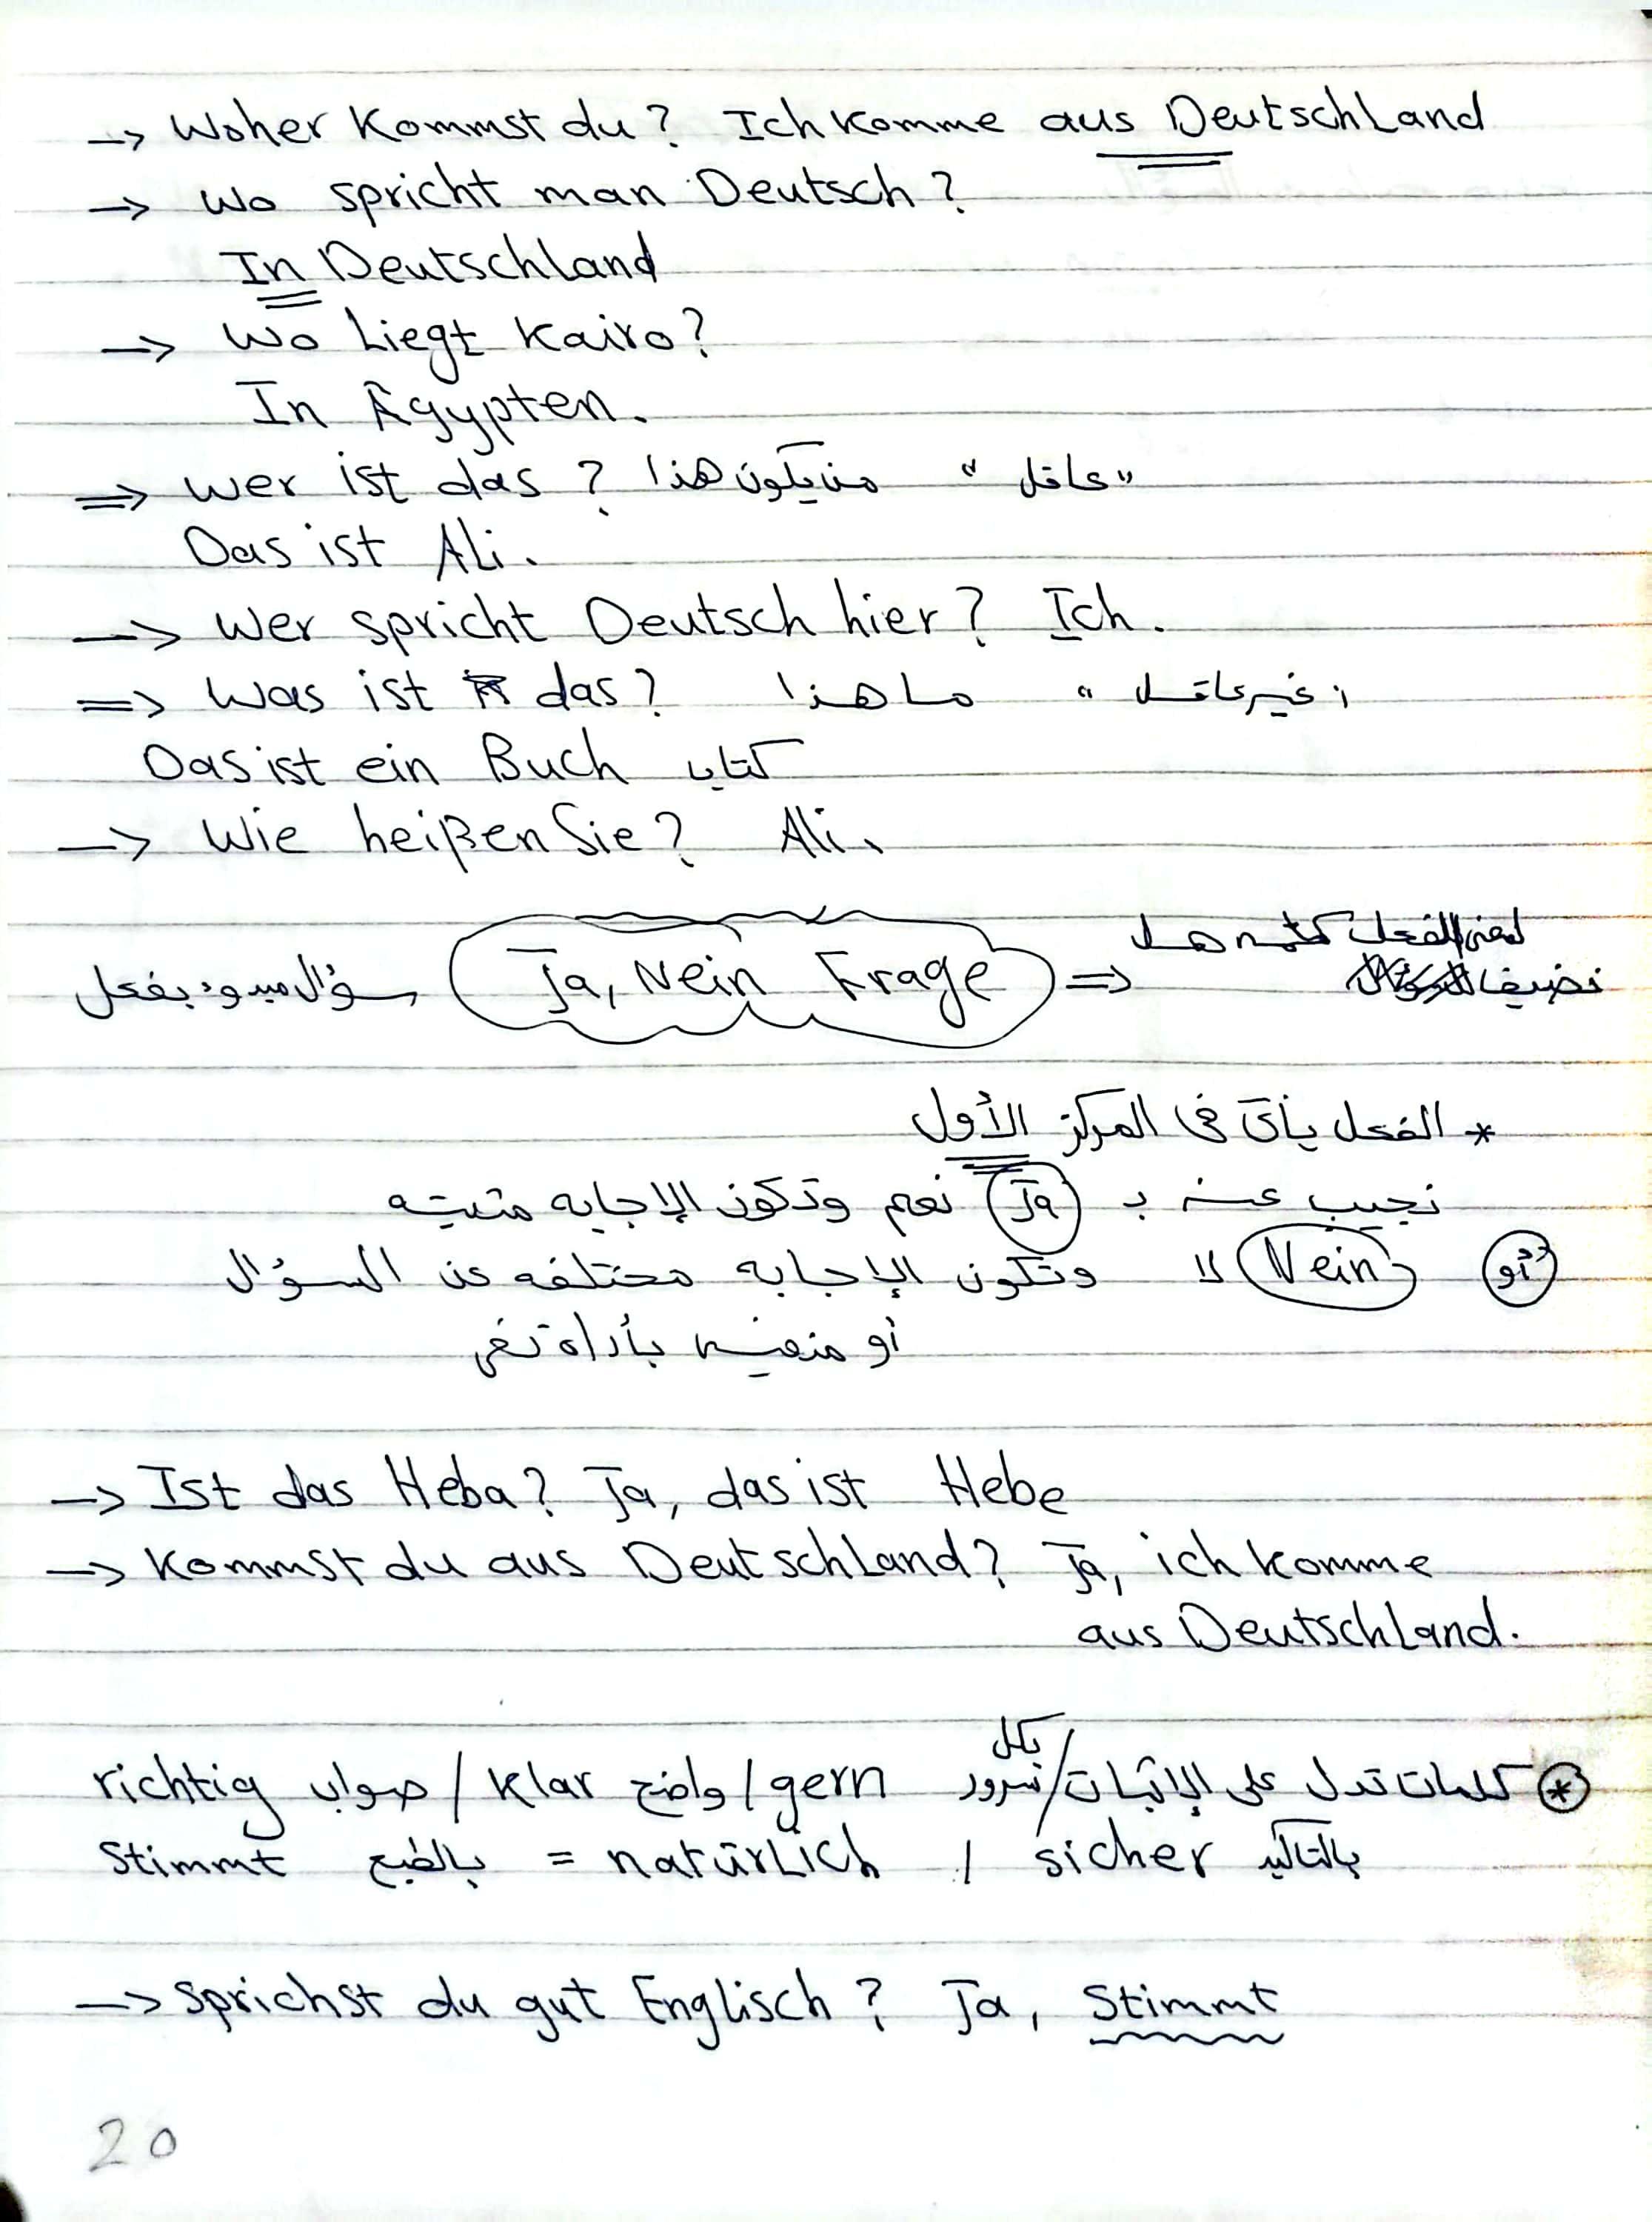 → Woher Kommst du? Ich komme aus Deutschland
→ Wo spricht man Deutsch?
In Deutschland
→ Wo Liegt Kairo?
In Ägypten.
⇒ Wer ist das? من يكون هذا "عاقل"
Das ist Ali.
→ Wer spricht Deutsch hier? Ich.
⇒ Was ist das? ما هذا "غير عاقل"
Das ist ein Buch كتاب
→ Wie heißen Sie? Ali.
سؤال مبدوء بفعل (Ja, Nein Frage) ⇐ نضيف لمعنى الفعل كلمه هل
* الفعل يأتى فى المركز الأول
نجيب عنه بـ Ja نعم وتكون الإجابه مثبته
أو Nein لا وتكون الإجابه مختلفه عن السؤال
أو منفيه بأداة نفى
→ Ist das Heba? Ja, das ist Hebe
→ Kommst du aus Deutschland? Ja, ich komme
aus Deutschland.
* كلمات تدل على الإثبات / بكل سرور gern / واضح Klar / صواب richtig
Stimmt بالطبع = natürlich / sicher بالتأكيد
→ Sprichst du gut Englisch? Ja, Stimmt
20